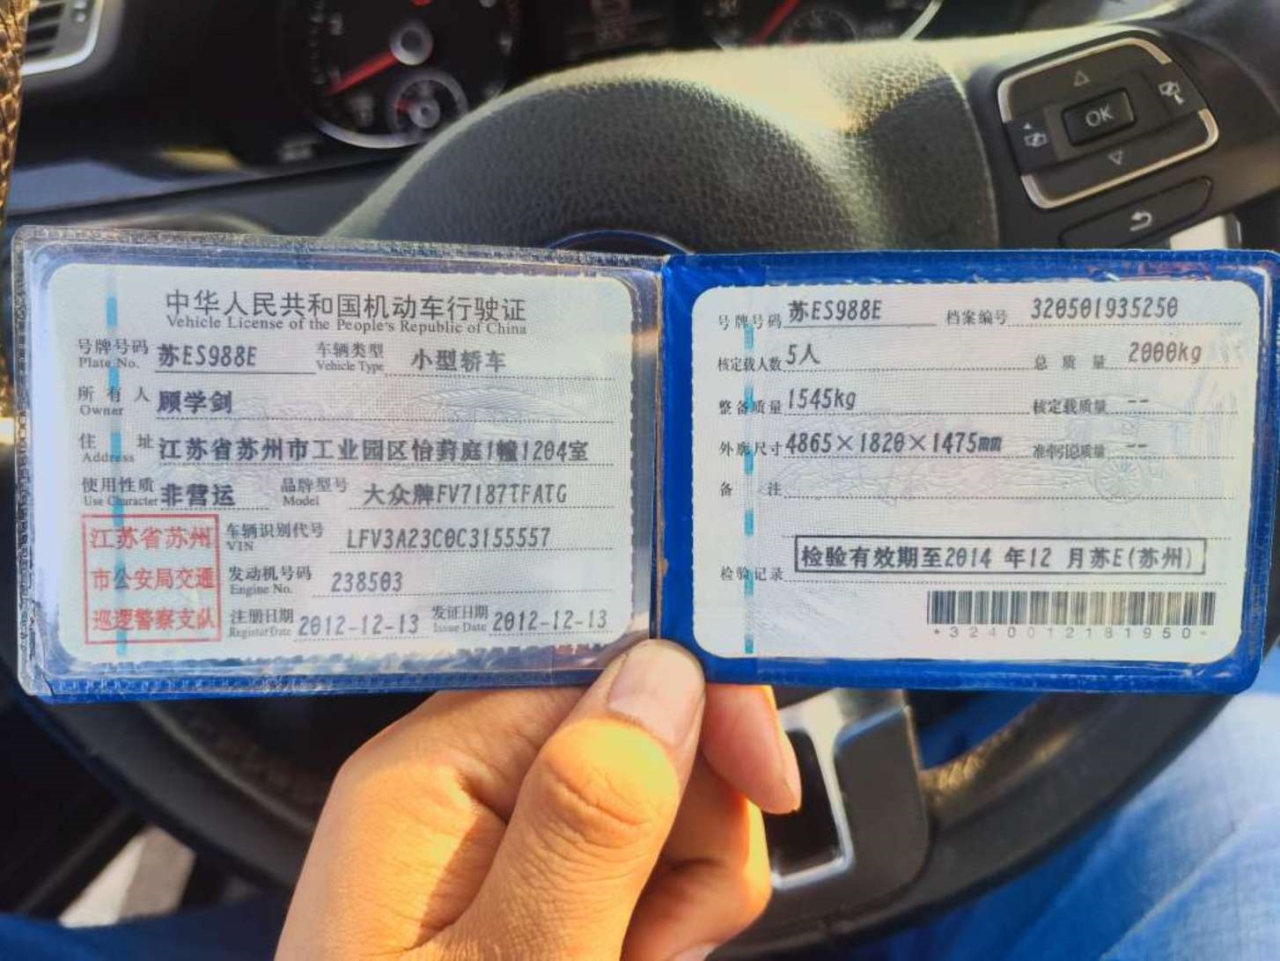 OK
中华人民共和国机动车行驶证
Vehicle License of the People's Republic of China
号牌号码 苏ES988E 车辆类型 小型轿车
Plate No. Vehicle Type
所有人 顾学剑
Owner
住址 江苏省苏州市工业园区怡葑庭1幢1204室
Address
使用性质 非营运 品牌型号 大众牌FV7187TFATG
Use Character Model
江苏省苏州
市公安局交通
巡逻警察支队
车辆识别代号 LFV3A23C0C3155557
VIN
发动机号码 238503
Engine No.
注册日期 2012-12-13 发证日期 2012-12-13
Register Date Issue Date
号牌号码 苏ES988E 档案编号 320501935250
核定载人数 5人 总质量 2000kg
整备质量 1545kg 核定载质量 --
外廓尺寸 4865×1820×1475mm 准牵引总质量 --
备注
检验记录 检验有效期至2014 年12 月苏E(苏州)
*3240012181950*